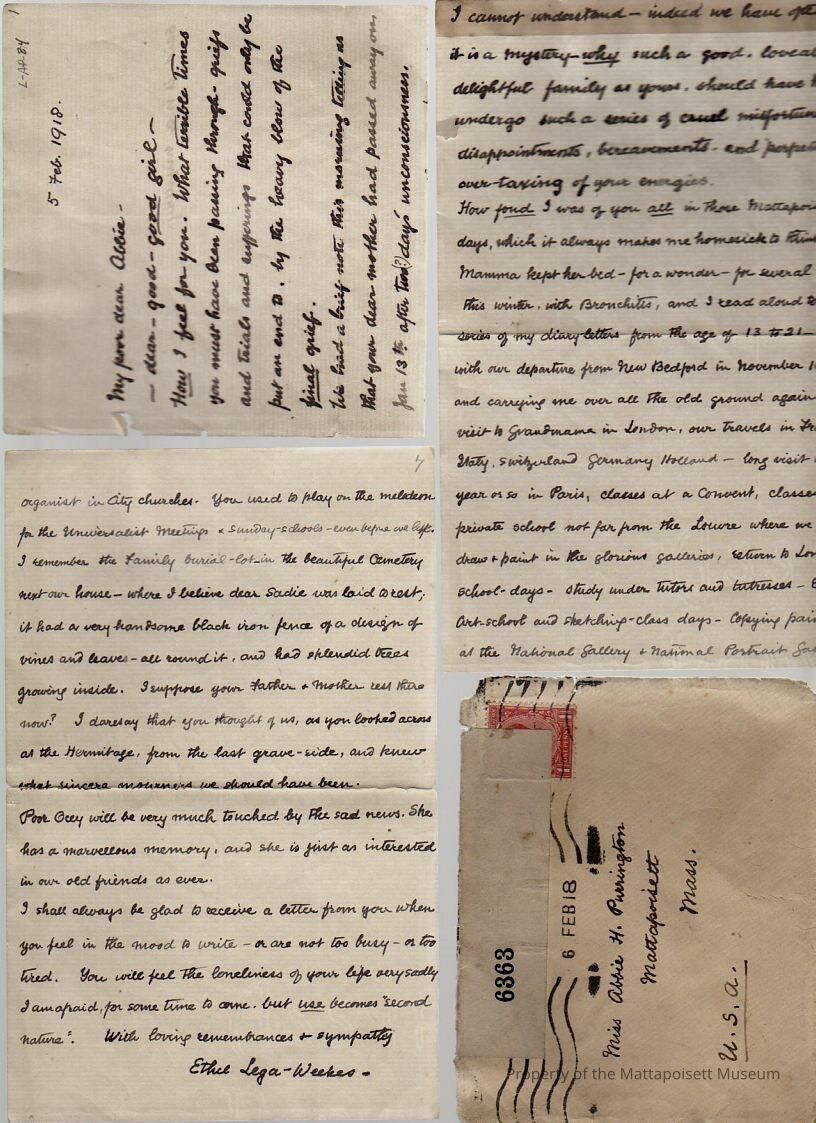 1
L-AP-84
5 Feb. 1918.
My poor dear Abbie -
- dear - good - good girl -
How I feel for you. What terrible times
you must have been passing through - griefs
and trials and sufferings that could only be
put an end to. by the heavy blow of the
final grief.
We had a brief note this morning telling us
that your dear mother had passed away on
Jan 13th after two(?) days' unconsciousness.
I cannot understand - indeed we have ofte
it is a mystery - why such a good. loveab
delightful family as yours. should have h
undergo such a series of cruel misfortun
disappointments, bereavements - and perpet
over-taxing of your energies.
How fond I was of you all in those Mattapois
days, which it always makes me homesick to thin
Mamma kept her bed - for a wonder - for several
this winter. with Bronchites, and I read aloud to
series of my diary-letters from the age of 13 to 21 -
with our departure from New Bedford in November 1
and carrying me over all the old ground again
visit to Grandmama in London, our travels in Fr
Italy, Switzerland Germany Holland - long visit
year or so in Paris, classes at a Convent, classes
private school not far from the Louvre where we
draw + paint in the glorious galleries, return to Lon
school-days - study under tutors and tutresses -
Art-school and sketching-class days - Copying pai
at the National Gallery + National Portrait Ga
7
organist in City churches. You used to play on the melodeon
for the Universalist Meetings & Sunday-schools - even before we left.
I remember the Family burial-lot in the beautiful Cemetery
next our house - where I believe dear Sadie was laid to rest;
it had a very handsome black iron fence of a design of
vines and leaves - all round it, and had splendid trees
growing inside. I suppose your Father + Mother rest there
now? I daresay that you thought of us, as you looked across
at the Hermitage, from the last grave-side, and knew
what sincere mourners we should have been.
Poor Ocey will be very much touched by the sad news. She
has a marvellous memory, and she is just as interested
in our old friends as ever.
I shall always be glad to receive a letter from you when
you feel in the mood to write - or are not too busy - or too
tired. You will feel the loneliness of your life very sadly
I am afraid, for some time to come. but use becomes "second
nature". With loving remembrances + sympathy
Ethel Lega-Weekes -
6363
6 FEB 18
Miss Abbie H. Purrington
Mattapoisett
Mass.
U.S.A.
Property of the Mattapoisett Museum